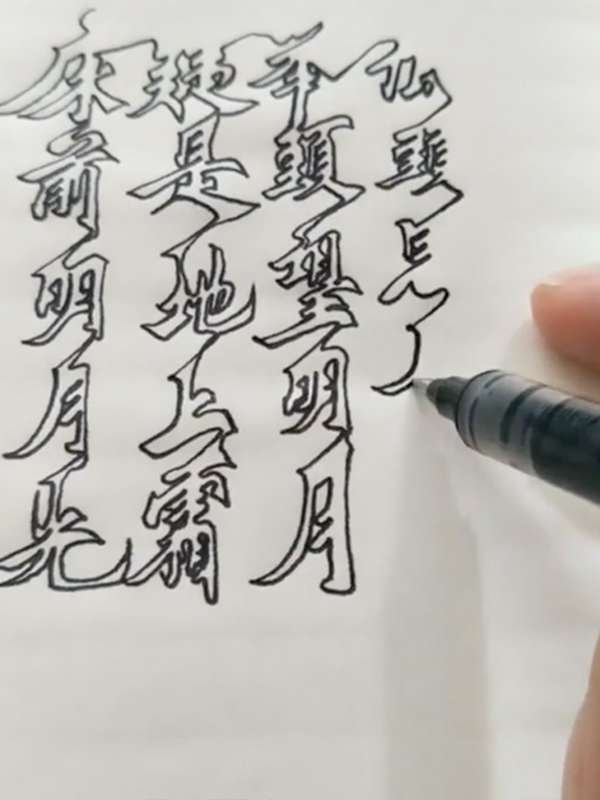 床前明月光
疑是地上霜
举頭望明月
低頭思